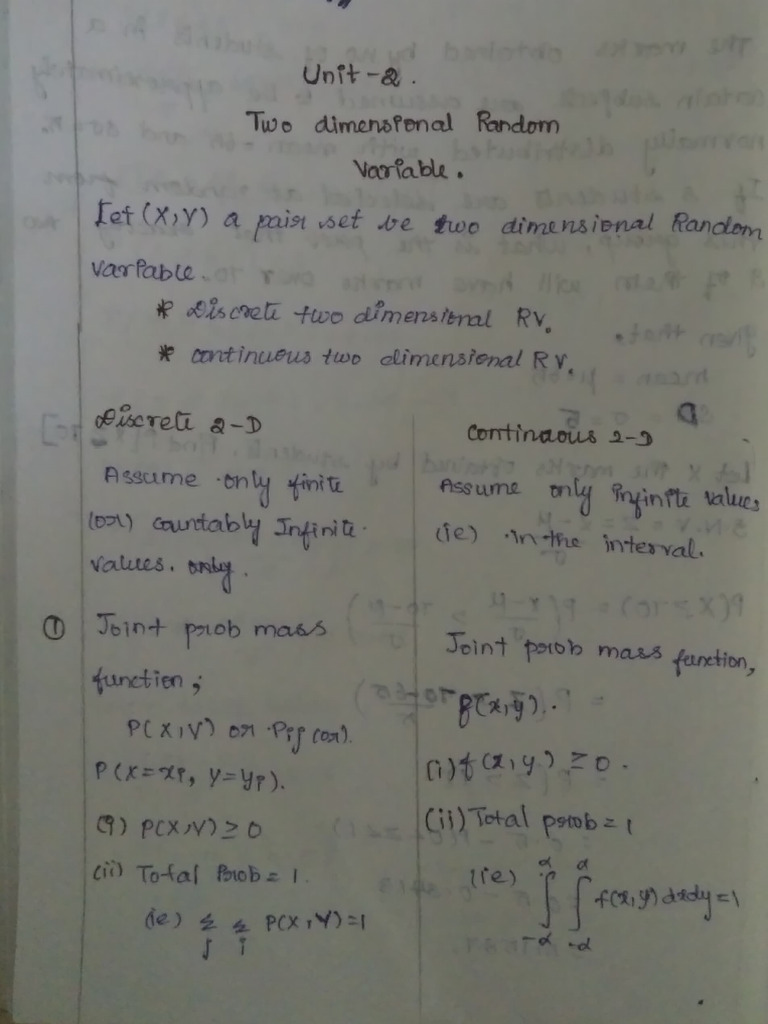 Unit-2.
Two dimensional Random
Variable.
Let (X,Y) a pair set be two dimensional Random
variable.
* Discrete two dimensional RV.
* continuous two dimensional RV.
Discrete 2-D
Assume only finite
(or) countably Infinite
values. only.
① Joint prob mass
function;
P(X,Y) or Pij (or).
P(X=xi, Y=yi).
(i) P(X,Y) ≥ 0
(ii) Total Prob = 1.
(ie) Σ Σ P(X,Y)=1
j i
continuous 2-D
Assume only infinite values
(ie) in the interval.
Joint prob mass function,
f(x,y).
(i) f(x,y) ≥ 0.
(ii) Total prob = 1
(ie) ∫ ∫ f(x,y) dxdy = 1